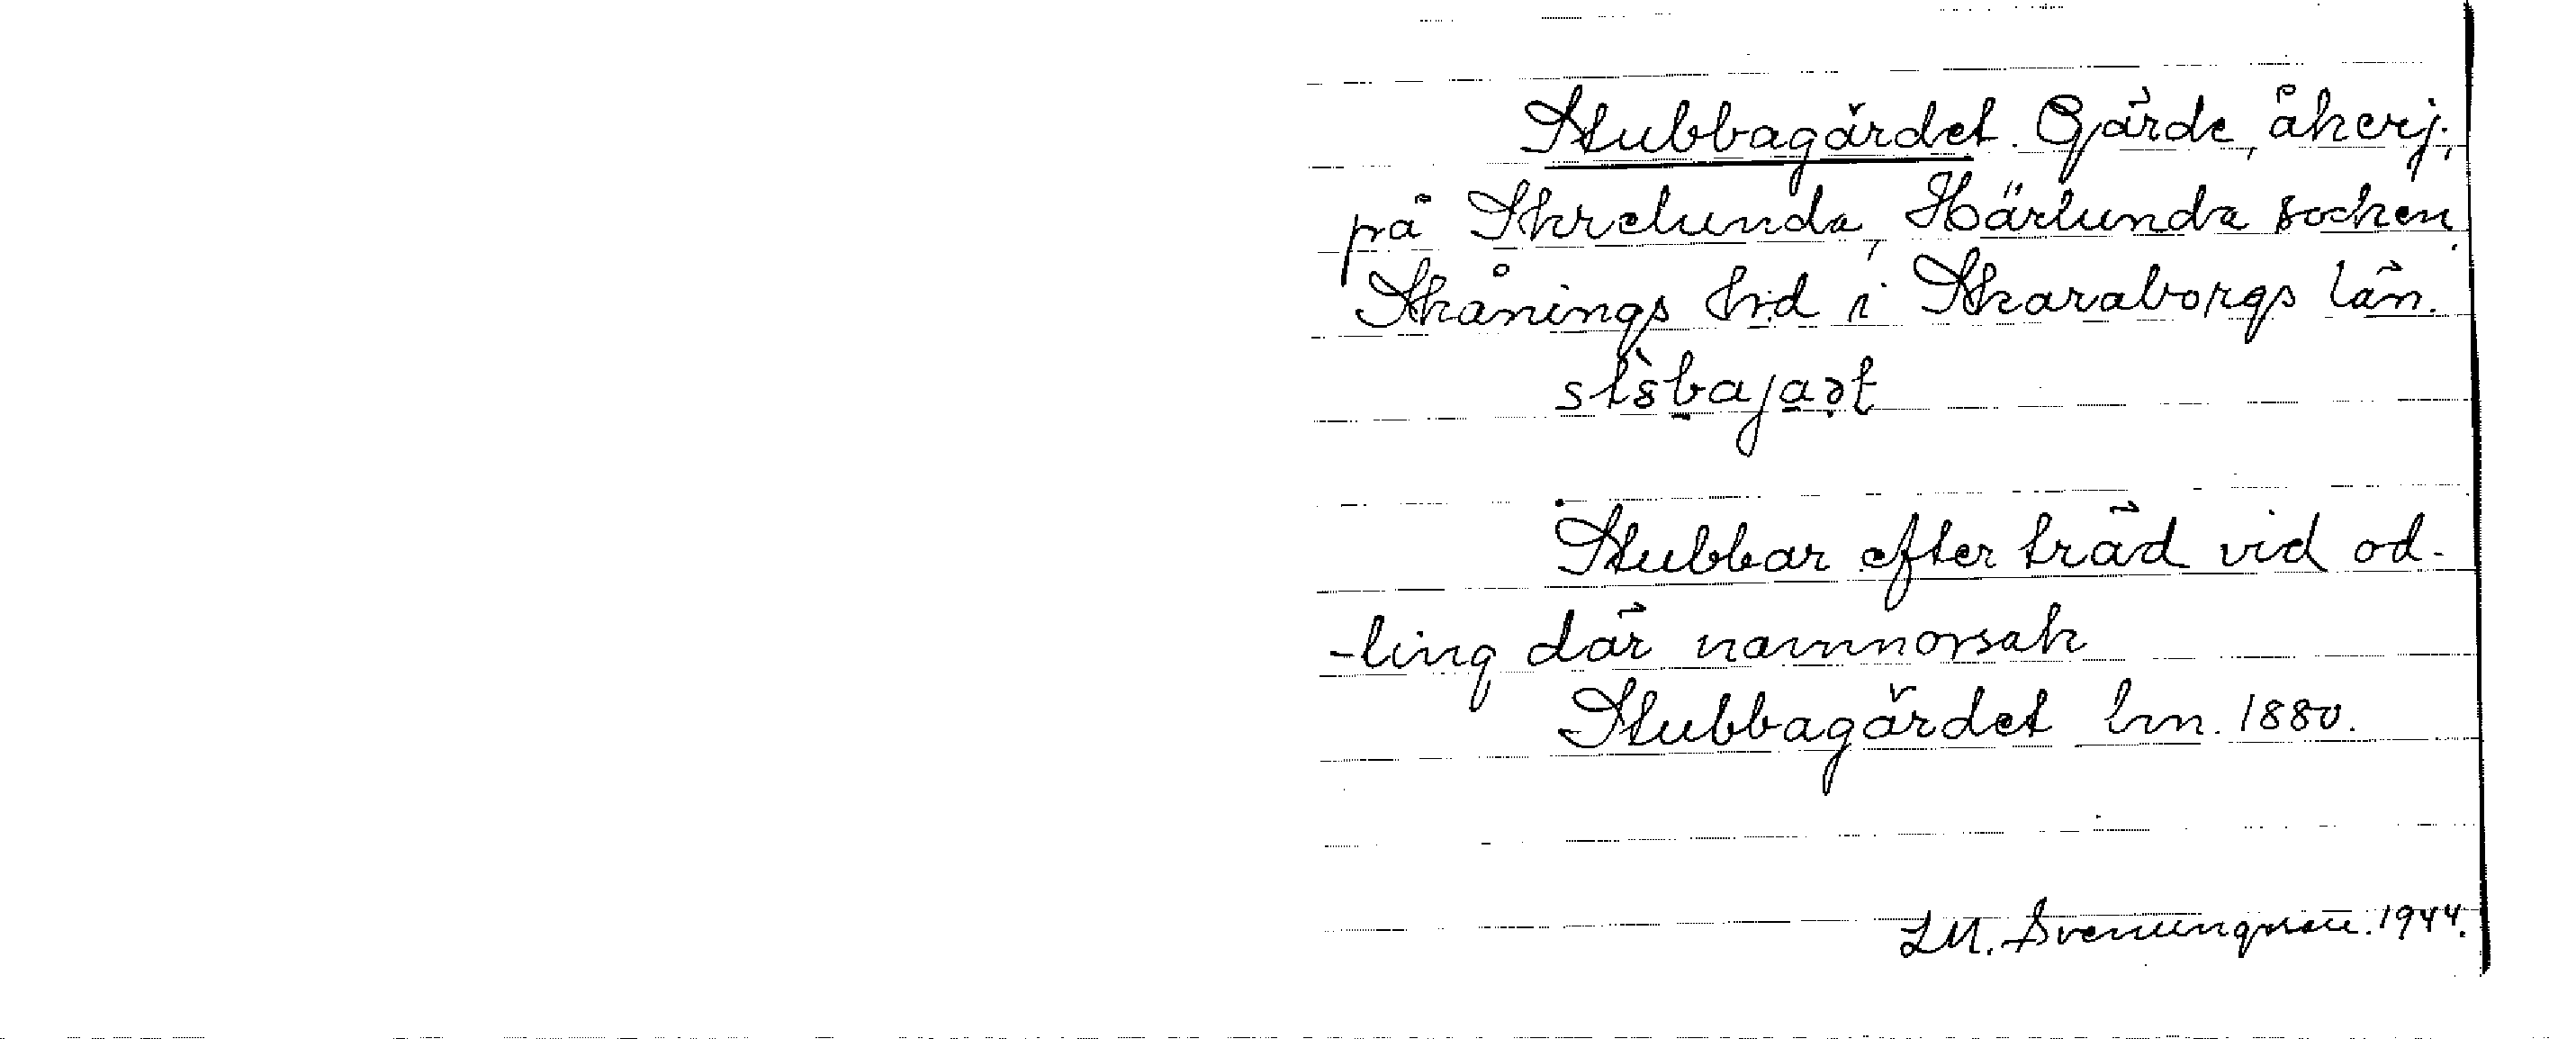 Stubbagärdet. Gärde, åkerj.,
på Skrelunda, Härlunda socken,
Skånings hrd i Skaraborgs län.
Stubbar efter träd vid od-
-ling där namnorsak
Stubbagärdet hm. 1880.
L.M. Svenungsson. 1944.